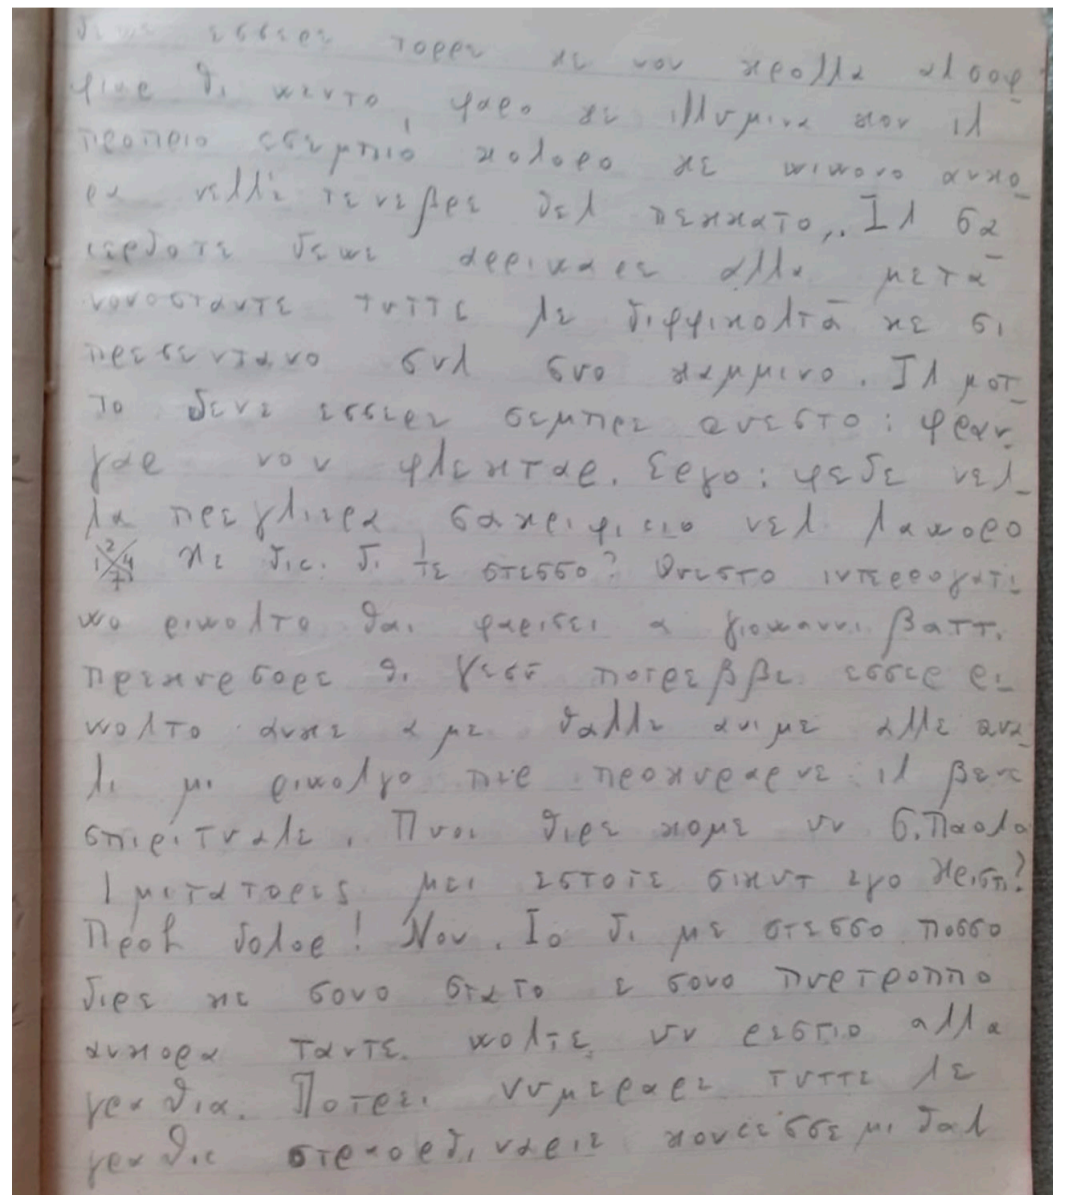 δεωε εσσερε τορρε κε νον κρολλα αλ σοφ-
φιαρ δι ωεντο, φαρο κε ιλλυμινα κον ιλ
προπριο εσεμπιο κολορο κε ωιωονο ανκο-
ρα νελλε τενεβρε δελ πεκκατο,. Ιλ σα-
cερδοτε δεωε αρριωαρε αλλα μετα
νονοσταντε τυττε λε διφφικολτα κε σι
πρεσεντανο συλ συο καμμινο. Ιλ μοτ-
το δεωε εσσερε σεμπρε qυεστο: φραν-
γαρ νον φλεκταρ. Εργο: φεδε νελ-
λα πρεγλιερα σακριφιcιο νελ λαωορο
1 2 4 7 κε διc. δι τε στεσσο? Qυεστο ιντερρογατι-
ωο ριωολτο δαι φαρισει α γιοωαννι βαττ.
πρεκυρσορε δι γεσυ ποτρεββε εσσερε ρι-
ωολτο ανκε α με. δαλλε ανιμε αλλε qυα-
λι μι ριωολγο περ προκυραρνε ιλ βενε
σπιριτυαλε. Πυοι διρε κομε υν σ. Παολο
Ιμιτατορες μει εστοτε σικυτ εγο κριστι?
Προh δολορ! Νον. Ιο δι με στεσσο ποσσο
διρε κε σονο στατο ε σονο πυρτροππο
ανκορα ταντε ωολτε υν ρεστιο αλλα
γραδια. Ποτρει νυμεραρε τυττε λε
γραδιε στραορδιναριε κονcεσσεμι δαλ